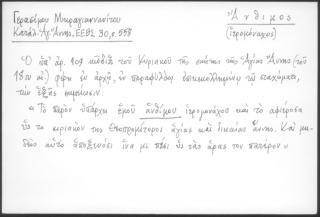 Γερασίμου Μικραγιαννανίτου
Κατάλ. Ἁγ. Ἄννης, ΕΕΒΣ 30, σ. 558
Ἄνθιμος
(ἱερομόναχος)
Ὁ ὑπ' ἀρ. 109 κῶδιξ τοῦ Κυριακοῦ τῆς σκήτης τῆς Ἁγίας Ἄννης (τοῦ
18ου αἰ.) φέρει ἐν ἀρχῇ, ἐν παραφύλλῳ
τὴν ἑξῆς σημείωσιν:
« Τὸ παρὸν ὑπάρχει ἐμοῦ ἀνθίμου ἱερομονάχου καὶ τὸ ἀφιέρωσα
τὸ κυριακὸν τῆς Θεοπρομήτορος ἁγίας καὶ δικαίας Ἄννης. Καὶ μη-
δεὶς αὐτὸ ἀποξενώσει ἵνα μὴ πέσει τὰς ἀρὰς τῶν πατέρων »